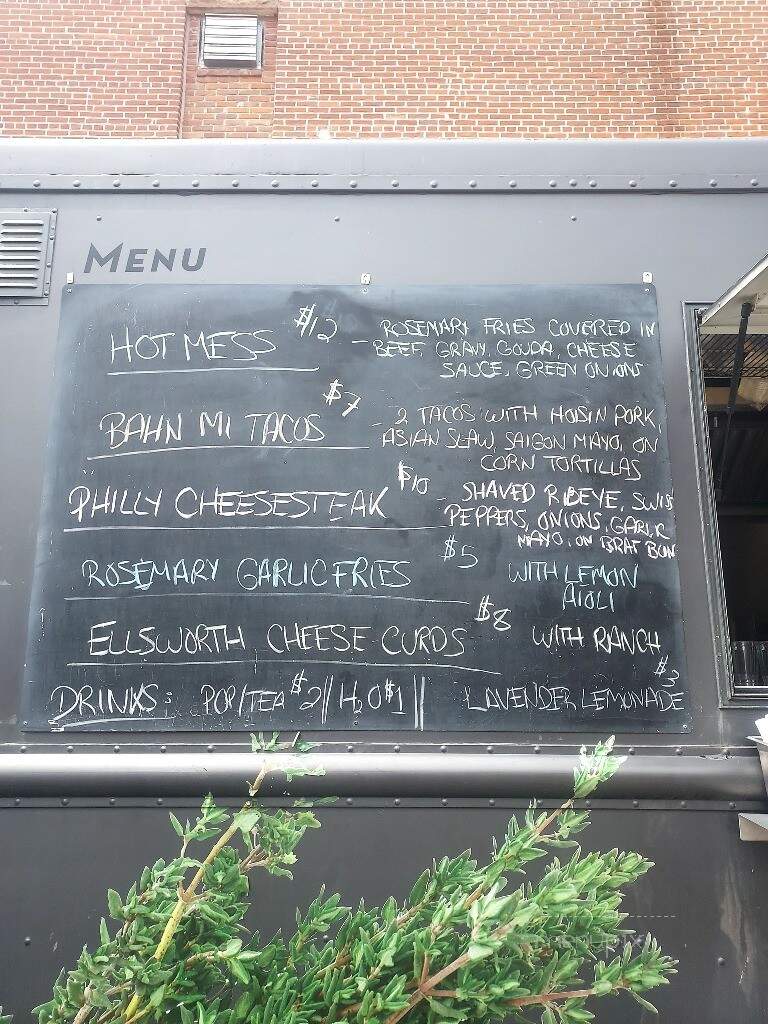 MENU
HOT MESS $12 - ROSEMARY FRIES COVERED IN
BEEF, GRAVY, GOUDA, CHEESE
SAUCE, GREEN ONIONS
BAHN MI TACOS $7 - 2 TACOS WITH HOISIN PORK,
ASIAN SLAW, SAIGON MAYO, ON
CORN TORTILLAS
PHILLY CHEESESTEAK $10 - SHAVED RIBEYE, SWISS
PEPPERS, ONIONS, GARLIC
MAYO, ON BRAT BUN
ROSEMARY GARLIC FRIES $5 WITH LEMON
AIOLI
ELLSWORTH CHEESE CURDS $8 WITH RANCH
DRINKS: POP/TEA $2 || H2O $1 || LAVENDER LEMONADE $3